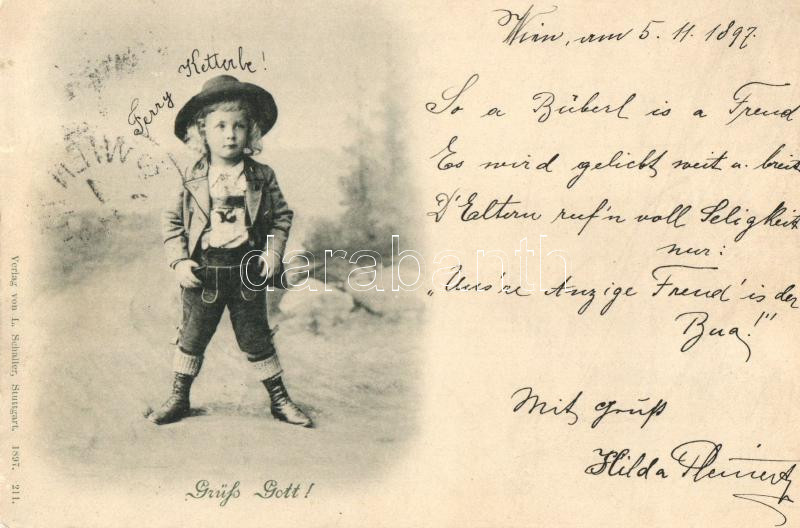 Wien, am 5. 11. 1897.
Ferry Ketterbe!
So a Büberl is a Freud
Es wird geliebt weit u. breit
D'Eltern ruf'n voll Seligkeit
nur:
„Uns're Anzige Freud' is der
Bua!"
Mit Gruß
Hilda
Grüß Gott!
Verlag von L. Schaller, Stuttgart, 1897. 211.
WIEN
darabanth